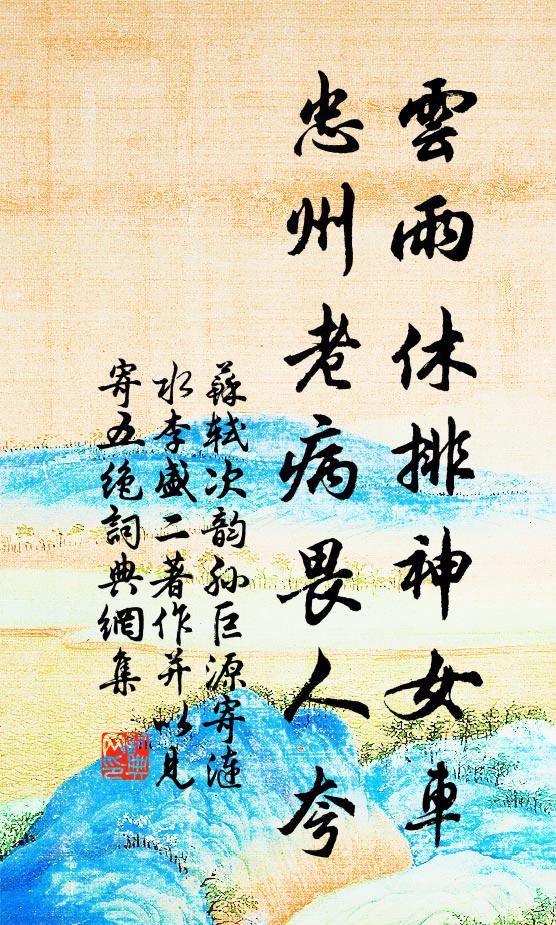 雲雨休排神女車
忠州老病畏人夸
蘇軾次韵孙巨源寄漣
水李盛二著作并以見
寄五绝詞典網集